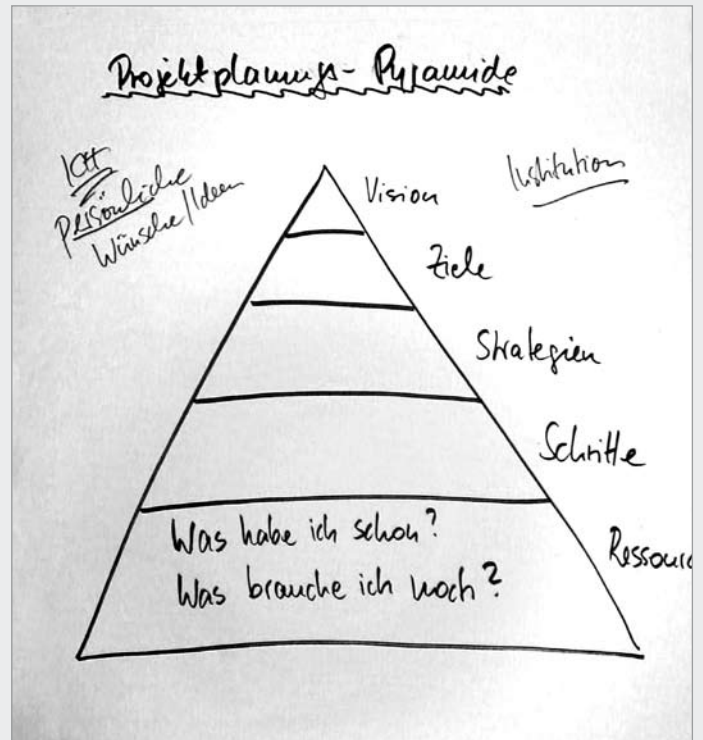 Projektplanungs-Pyramide
ICH
persönliche
Wünsche/Ideen
Institution
Vision
Ziele
Strategien
Schritte
Was habe ich schon?
Was brauche ich noch?
Ressourc